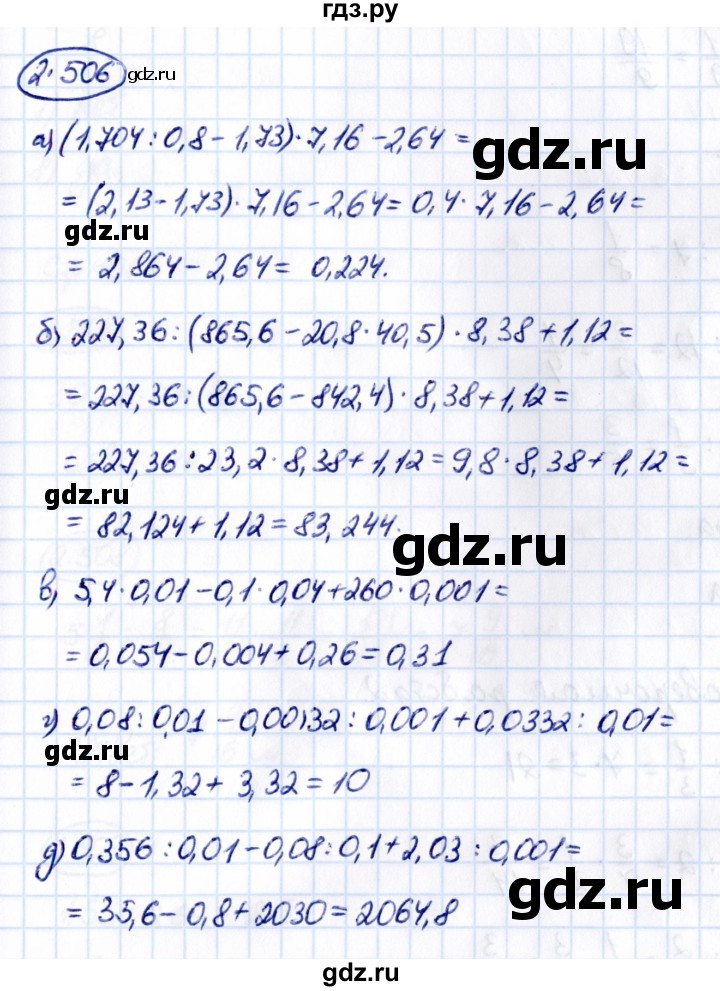 гдз.ру
2.506 gdz.ru
а) (1,704 : 0,8 - 1,73) · 7,16 - 2,64 =
gdz.ru
= (2,13 - 1,73) · 7,16 - 2,64 = 0,4 · 7,16 - 2,64 =
gdz.ru
= 2,864 - 2,64 = 0,224.
б) 227,36 : (865,6 - 20,8 · 40,5) · 8,38 + 1,12 =
= 227,36 : (865,6 - 842,4) · 8,38 + 1,12 =
= 227,36 : 23,2 · 8,38 + 1,12 = 9,8 · 8,38 + 1,12 =
gdz.ru
= 82,124 + 1,12 = 83,244.
gdz.ru
в) 5,4 · 0,01 - 0,1 · 0,04 + 260 · 0,001 =
= 0,054 - 0,004 + 0,26 = 0,31
г) 0,08 : 0,01 - 0,00132 : 0,001 + 0,0332 : 0,01 =
gdz.ru
= 8 - 1,32 + 3,32 = 10
д) 0,356 : 0,01 - 0,08 : 0,1 + 2,03 : 0,001 =
gdz.ru
= 35,6 - 0,8 + 2030 = 2064,8
gdz.ru